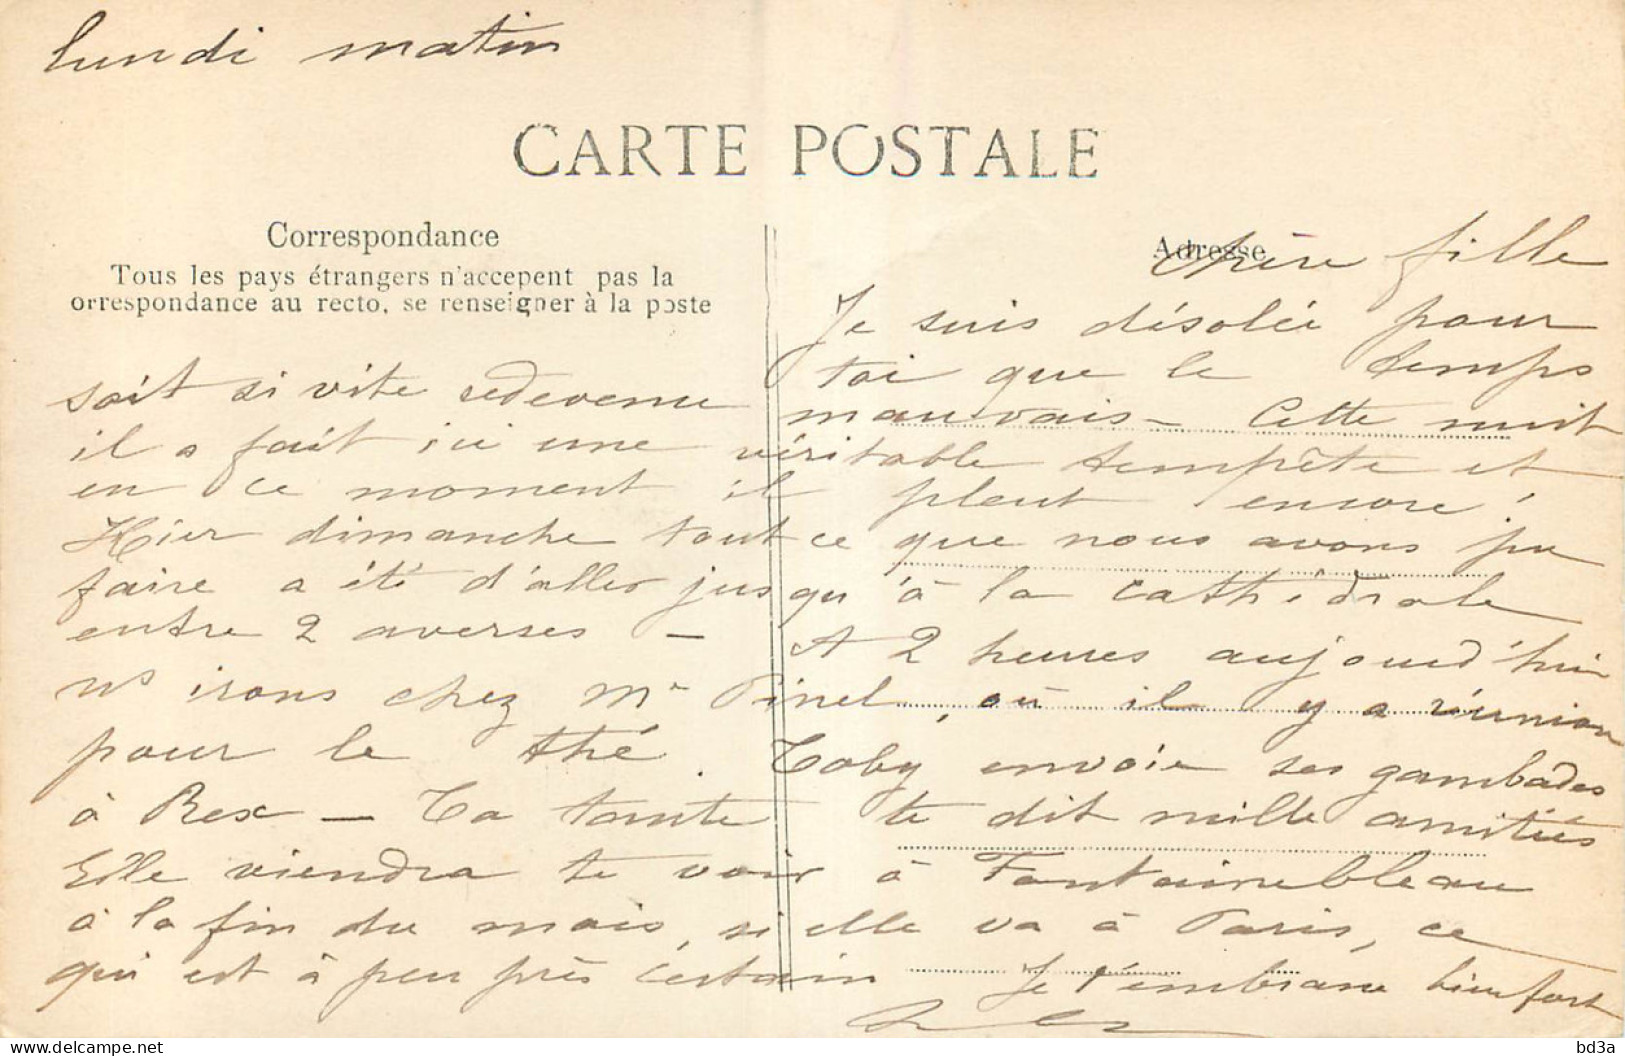 lundi matin
CARTE POSTALE
Correspondance
Tous les pays étrangers n'accepent pas la
orrespondance au recto, se renseigner à la poste
Adresse
chère fille
Je suis désolée pour
toi que le temps
soit si vite redevenu mauvais – Cette nuit
il a fait ici une véritable tempête et
en ce moment il pleut encore !
Hier dimanche tout ce que nous avons pu
faire a été d'aller jusqu'à la cathédrale
entre 2 averses – A 2 heures aujourd'hui
ns irons chez Mr Pinel, où il y a réunion
pour le thé. Toby envoie ses gambades
à Rex – Ta tante te dit mille amitiés
Elle viendra te voir à Fontainebleau
à la fin du mois, si elle va à Paris, ce
qui est à peu près certain Je t'embrasse bien fort
bd3a